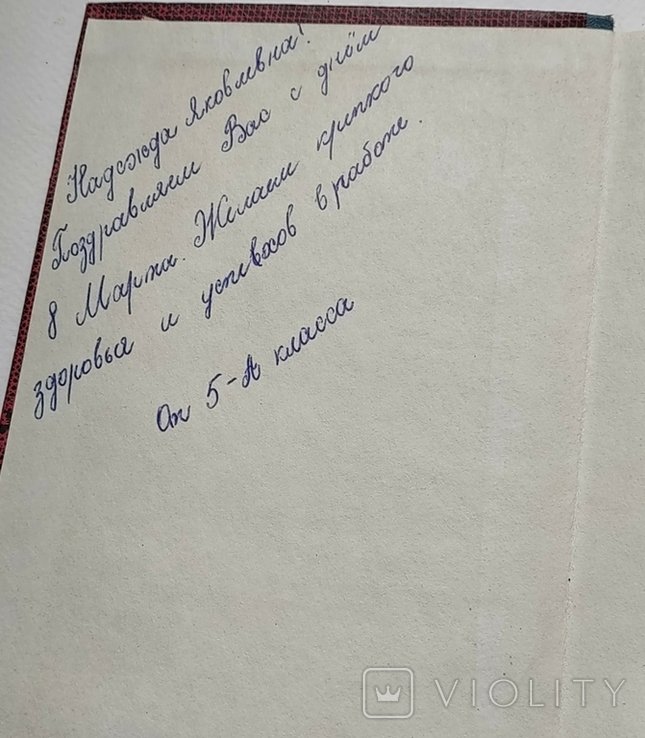 Надежда Яковлевна!
Поздравляем Вас с днём
8 Марта. Желаем крепкого
здоровья и успехов в работе.
От 5-А класса
VIOLITY